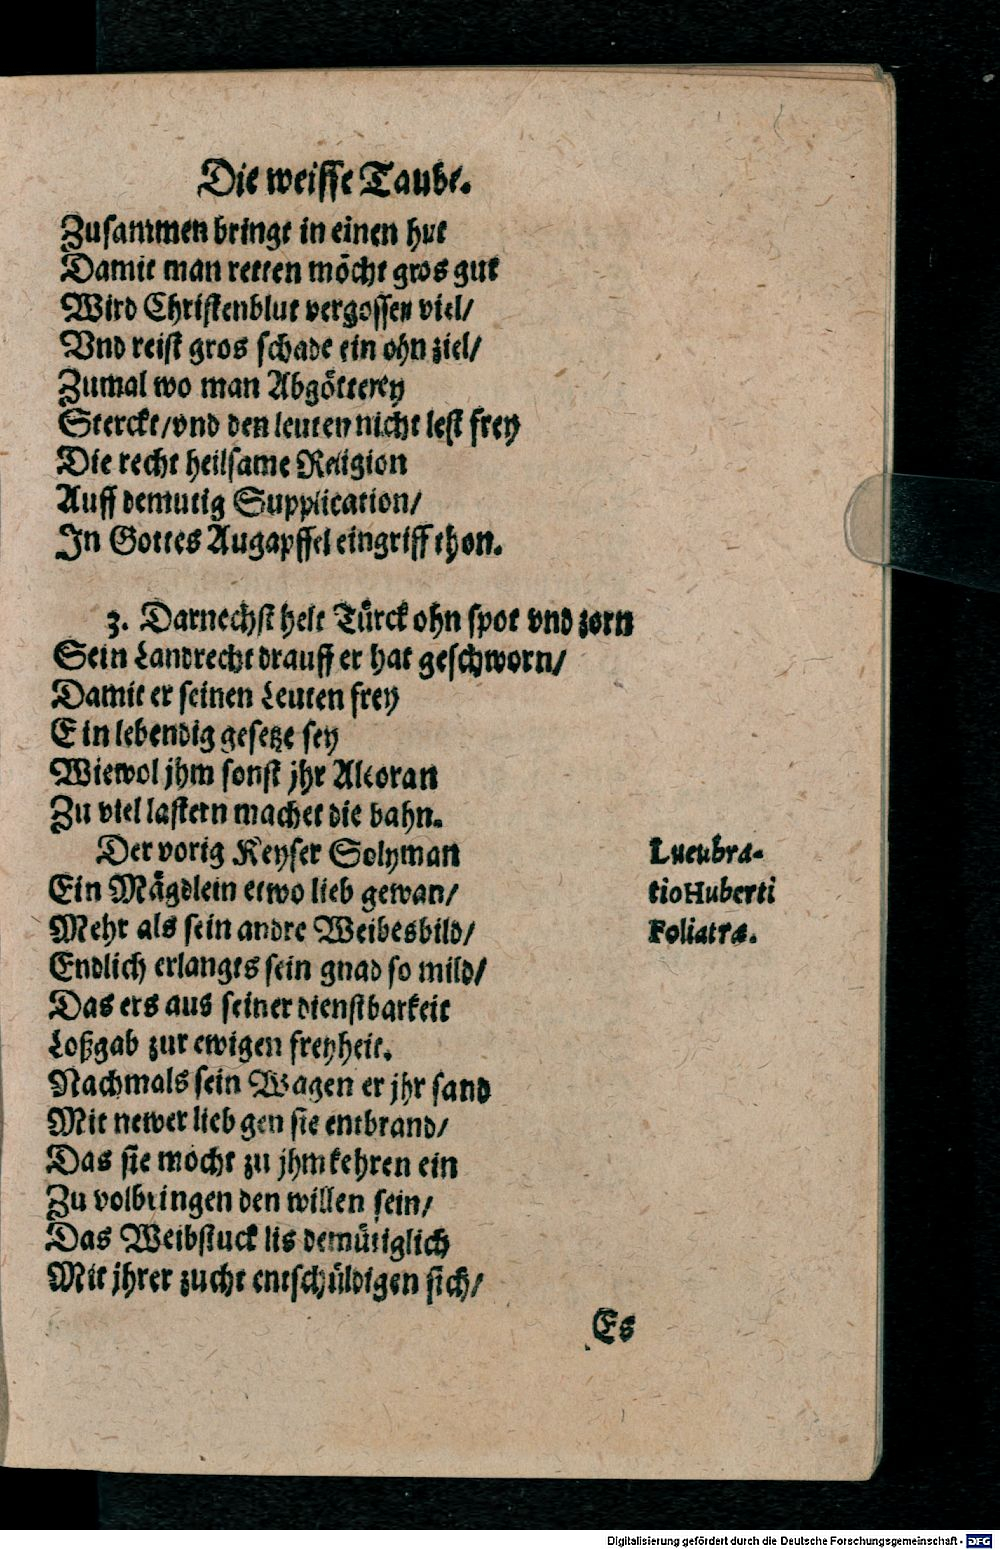 Die weisse Taube.
Zusammen bringt in einen hut
Damit man retten möcht gros gut
Wird Christenblut vergossen viel/
Vnd reist gros schade ein ohn ziel/
Zumal wo man Abgötterey
Sterckt/vnd den leuten nicht lest frey
Die recht heilsame Religion
Auff demutig Supplication/
In Gottes Augapffel eingriff thon.
3. Darnechst helt Türck ohn spot vnd zorn
Sein Landrecht drauff er hat geschworn/
Damit er seinen Leuten frey
Ein lebendig gesetze sey
Wiewol jhm sonst jhr Alcoran
Zu viel lastern machet die bahn.
Der vorig Keyser Solyman
Ein Mägdlein etwo lieb gewan/
Mehr als sein andre Weibesbild/
Endlich erlangts sein gnad so mild/
Das ers aus seiner dienstbarkeit
Loßgab zur ewigen freyheit.
Nachmals sein Wagen er jhr sand
Mit newer lieb gen sie entbrand/
Das sie möcht zu jhm kehren ein
Zu volbringen den willen sein/
Das Weibstuck lis demütiglich
Mit jhrer zucht entschüldigen sich/
Lucubra-
tio Huberti
Foliatræ.
Es
Digitalisierung gefördert durch die Deutsche Forschungsgemeinschaft - DFG